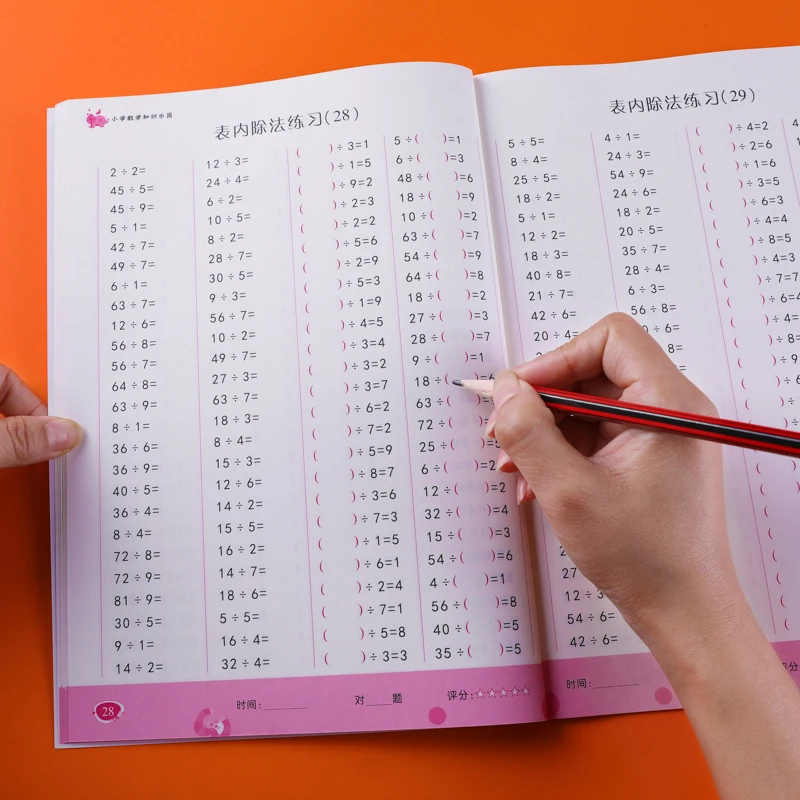 小学数学知识乐园
表内除法练习(28)
2÷2=
45÷5=
45÷9=
5÷1=
42÷7=
49÷7=
6÷1=
63÷7=
12÷6=
56÷8=
56÷7=
64÷8=
63÷9=
8÷1=
36÷6=
36÷9=
40÷5=
36÷4=
8÷4=
72÷8=
72÷9=
81÷9=
30÷5=
9÷1=
14÷2=
12÷3=
24÷4=
6÷2=
10÷5=
8÷2=
28÷7=
30÷5=
9÷3=
56÷7=
10÷2=
49÷7=
27÷3=
63÷7=
18÷3=
8÷4=
15÷3=
12÷6=
14÷2=
15÷5=
16÷2=
14÷7=
18÷6=
5÷5=
16÷4=
32÷4=
( )÷3=1
( )÷1=5
( )÷9=2
( )÷2=3
( )÷2=2
( )÷5=6
( )÷2=9
( )÷5=3
( )÷1=9
( )÷4=5
( )÷3=4
( )÷3=2
( )÷3=7
( )÷6=2
( )÷7=2
( )÷5=9
( )÷8=7
( )÷3=6
( )÷7=3
( )÷1=5
( )÷6=1
( )÷2=4
( )÷7=1
( )÷5=8
( )÷3=3
5÷( )=1
6÷( )=3
48÷( )=6
18÷( )=9
10÷( )=2
63÷( )=7
54÷( )=9
64÷( )=8
18÷( )=2
27÷( )=3
28÷( )=7
9÷( )=1
18÷( )=6
63÷(
72÷(
25÷( )=5
6÷( )=2
12÷( )=2
32÷( )=4
15÷( )=3
54÷( )=6
4÷( )=1
56÷( )=8
40÷( )=5
35÷( )=5
28
时间:______
对____题
评分:☆☆☆☆☆
表内除法练习(29)
5÷5=
8÷4=
25÷5=
18÷2=
5÷1=
12÷2=
18÷3=
40÷8=
21÷7=
42÷6=
20÷4=
27
12÷3
54÷6=
42÷6=
4÷1=
24÷3=
54÷9=
24÷6=
18÷2=
20÷5=
35÷7=
28÷4=
6÷3=
56÷8=
÷6=
( )÷4=2
( )÷2=6
( )÷1=6
( )÷3=5
( )÷6=3
( )÷4=4
( )÷8=5
( )÷4=3
( )÷7=7
( )÷6=4
( )÷4=
( )÷8=
时间:______